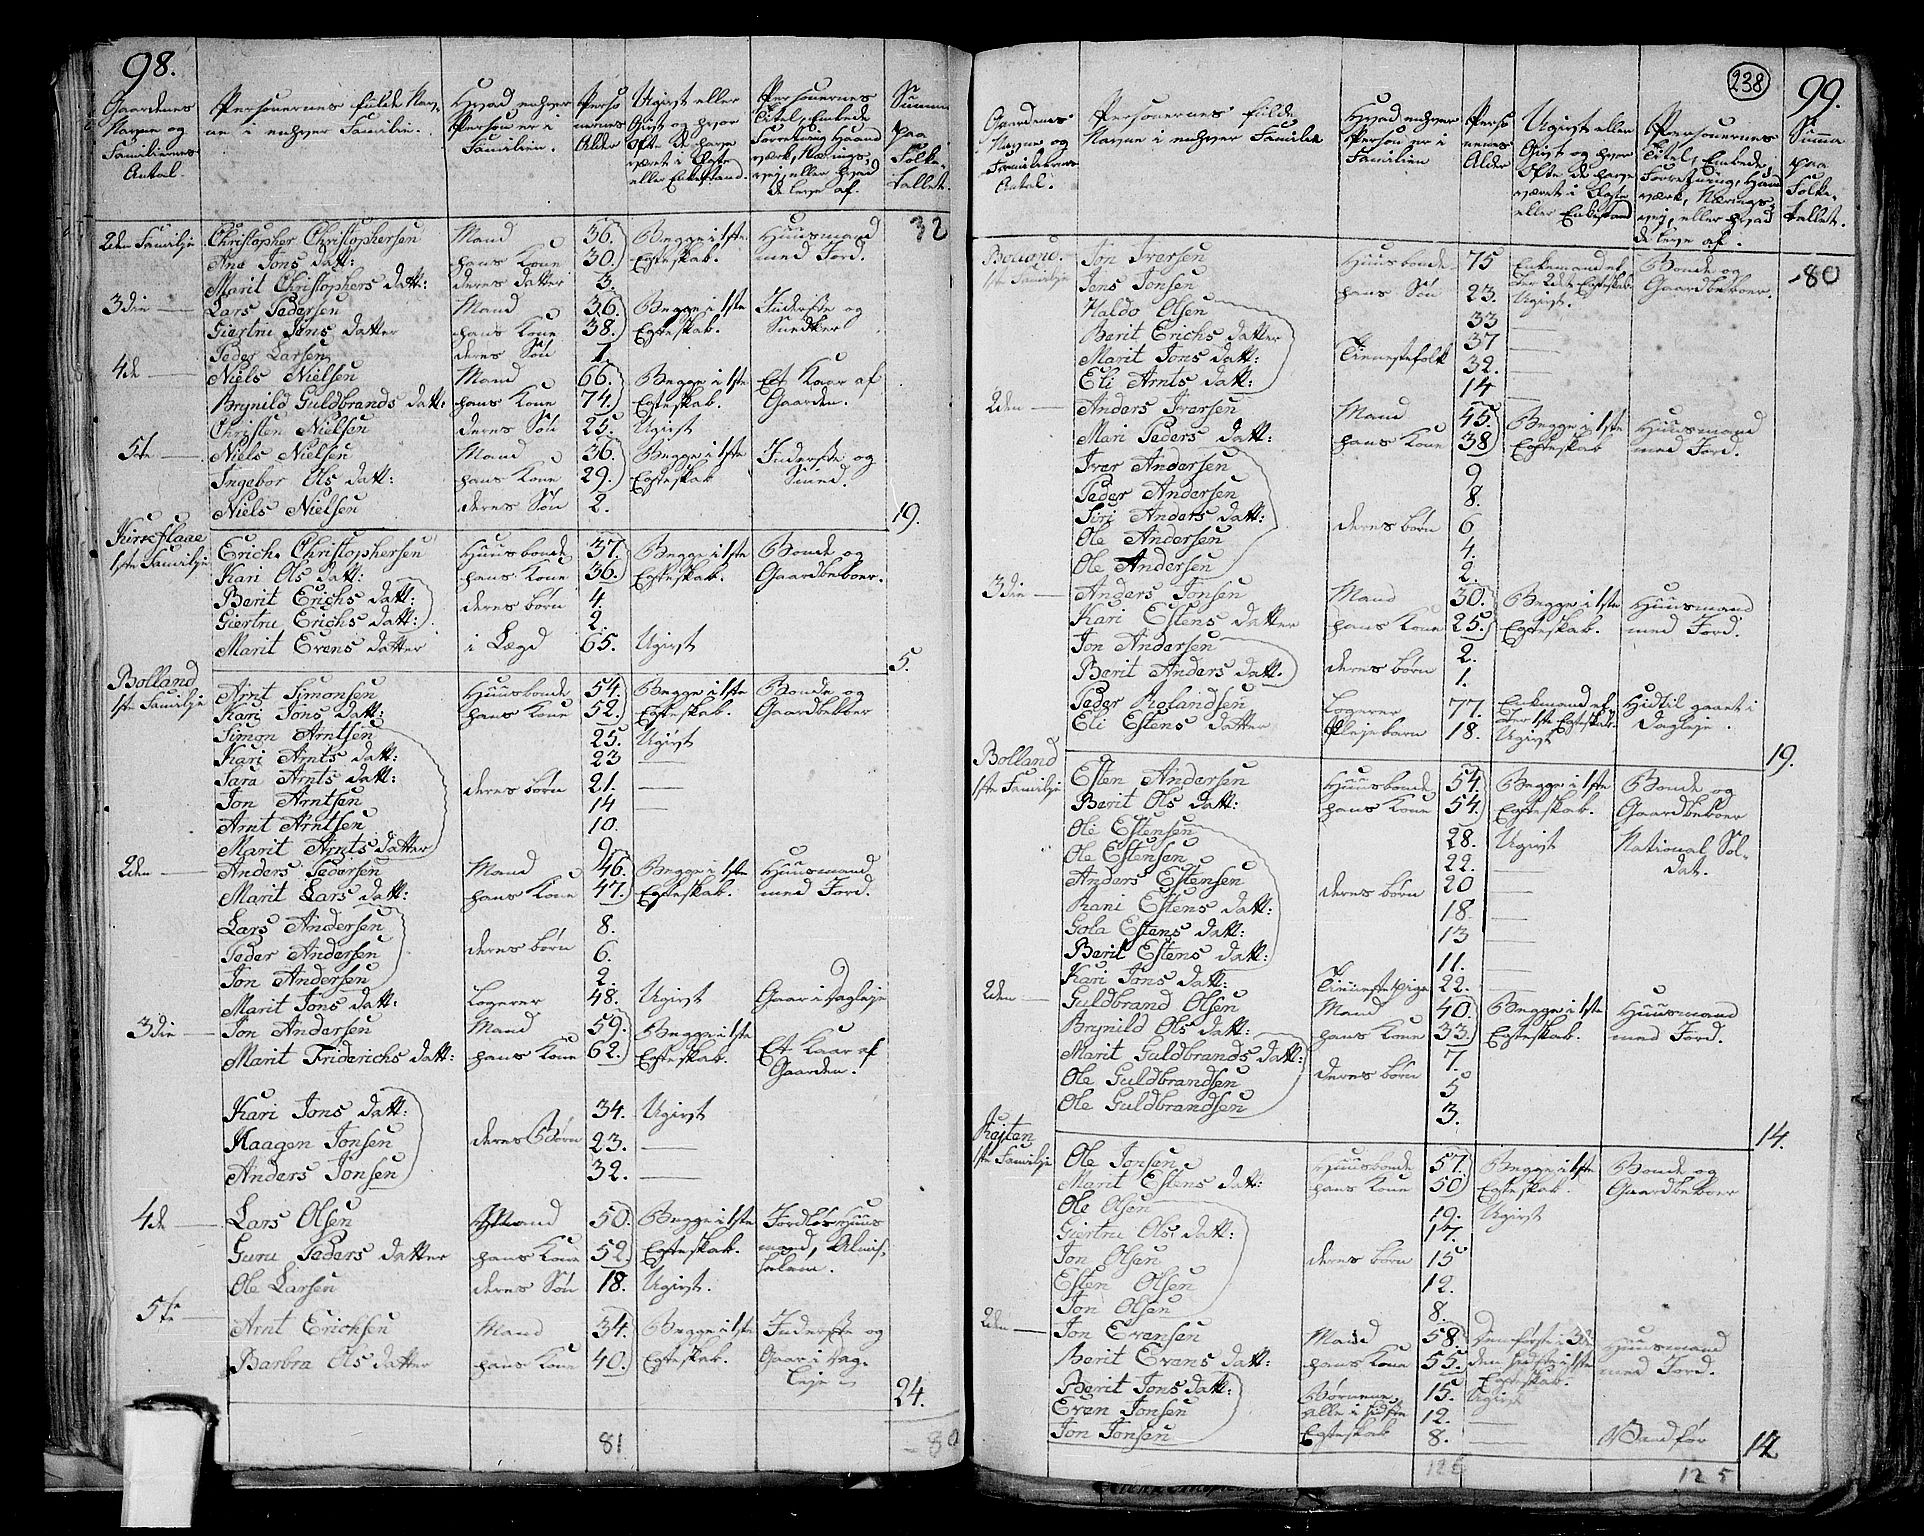 98.
Gaardenes Navne og Familiernes Antal.
Personernes fulde Navne i enhver Familie.
Hvad enhver Person er i Familien.
Personernes Alder
Ugivt eller Givt og hvor Ofte de have været i Ægte eller Enkestand.
Personernes Titel, Embede Forretning, Haandværk, Næringsvej, eller hvad de leve af.
Summa paa Folketallet.
32
2den Familie Christopher Christophersen Mand 36. Begge i 1ste Huusmand
Ane Jons datt: hans Kone 30. Egteskab. med Jord.
Marit Christophers datt: deres datter 3.
3die Lars Pedersen Mand 36. Begge i 1ste Inderste og
Giertru Jens datter hans Kone 38. Egteskab. Snedker
Peder Larsen deres Søn 1.
4de Niels Nielsen Mand 66. Begge i 1ste Et Kaar af
Brynild Guldbrands datt: hans Kone 74. Egteskab. Gaarden.
Christen Nielsen deres Søn 25. Ugivt
5te Niels Nielsen Mand 36. Begge i 1ste Inderste og
Ingebor Ols datt: hans Kone 29. Egteskab Smed.
Niels Nielsen deres Søn 2. 19.
Kirkeflaae
1ste Familie Erich Christophersen Huusbonde 37. Begge i 1ste Bonde og
Kari Ols datt: hans Kone 36. Egteskab. Gaardbeboer.
Berit Erichs datt: deres børn 4.
Giertru Erichs datt: 2.
Marit Evens datter i Lægd 65. Ugivt 5.
Bolland
1ste Familie Arnt Simonsen Huusbonde 54. Begge i 1ste Bonde og
Kari Jons datt: hans Kone 52. Egteskab. Gaardbeboer
Simon Arntsen 25. Ugivt
Kari Arnts datt: 23
Sara Arnts datt: deres børn 21.
Jon Arntsen 14
Arnt Arntsen 10.
Marit Arnts datter 9
2den Anders Pedersen Mand 46. Begge i 1ste Huusmand
Marit Lars datt: hans Kone 47. Egteskab. med Jord.
Lars Andersen 8.
Peder Andersen deres børn 6.
Jon Andersen 2.
Marit Jons datt: Logerer 48. Ugivt Gaar i Dagleje
3die Jon Andersen Mand 59. Begge i 1ste Et Kaar af
Marit Friderichs datt: hans Kone 62. Egteskab. Gaarden.
Kari Jons datt: 34. Ugivt
Haagen Jonsen deres Børn 23.
Anders Jonsen 32.
4de Lars Olsen Mand 50. Begge i 1ste Jordløs Huus
Guru Peders datter hans Kone 52. Egteskab. mand, Almis-
Ole Larsen deres Søn 18. Ugivt. selem.
5te Arnt Erichsen Mand 34. Begge i 1ste Inderste og
Barbra Ols datter hans Kone 40. Egteskab. Gaar i Dag-
leje 24.
81 80
238
99.
Gaardenes Navne og Familiernes Antal.
Personernes fulde Navne i enhver Familie
Hvad enhver Person er i Familien
Personernes Alder
Ugivt eller Givt og hvor Ofte de have været i Ægte eller Enkestand
Personernes Titel, Embede, Forretning, Haandværk, Næringsvej, eller hvad de leve af.
Summa paa Folketallet.
1ste Familie Jon Iversen Huusbonde 75 Enkemand ef- Bonde og 80
Jens Jonsen hans Søn 23. ter 2det Egteskab Ugivt. Gaardbeboer.
Haldo Olsen 33
Berit Erichs datter 37
Marit Jons datt: Tienestefolk 32.
Eli Arnts datt: 14
2den Anders Iversen Mand 45. Begge i 1ste Huusmand
Mari Peders datt: hans Kone 38 Egteskab med Jord.
Iver Andersen 9
Peder Andersen 8.
Siri Anders datt: deres børn 6
Ole Andersen 4.
Ole Andersen 2.
3die Anders Jonsen Mand 30. Begge i 1ste Huusmand
Kari Estens datter hans Kone 25. Egteskab. med Jord.
Jon Andersen 2.
Berit Anders datt. deres børn 1.
Peder Rolandsen Logerer 77. Enkemand ef- Hidtil gaaet i
ter 1ste Egteskab. Dagleje.
Eli Estens datter Plejebarn 18. Ugivt 19.
Bolland
1ste Familie Esten Andersen Huusbonde 54. Begge i 1ste Bonde og
Berit Ols datt: hans Kone 54. Egteskab. Gaardbeboer
Ole Estensen 28. Ugivt National Sol-
Ole Estensen 22. dat.
Anders Estensen deres børn 20
Rani Estens datt: 18.
Gola Estens datt: 13
Berit Estens datt: 11.
Kari Jons datt: Tienestepige 22.
2den Guldbrand Olsen Mand 40. Begge i 1ste Huusmand
Brynild Ols datt: hans Kone 33. Egteskab. med Jord.
Marit Guldbrands datt: 7.
Ole Guldbrandsen deres børn 5
Ole Guldbrandsen 3. 14.
1ste Familie Ole Jonsen Huusbonde 57. Begge i 1ste Bonde og
Marit Estens datt: hans Kone 50 Egteskab. Gaardbeboer
Ole Olsen 19. Ugivt
Giertru Ols datt: 17.
Jon Olsen deres børn 15
Esten Olsen 12.
Jon Olsen 8.
2den Jon Evensen Mand 58. Den første i 3die Huusmand
Berit Evens datt: hans Kone 55. den sidste i 1ste Egteskab. med Jord.
Berit Jons datt: Børnene 15. Ugivt
Even Jonsen alle i sidste 12.
Jon Jonsen Egteskab 8. Vanfør 14
126 125